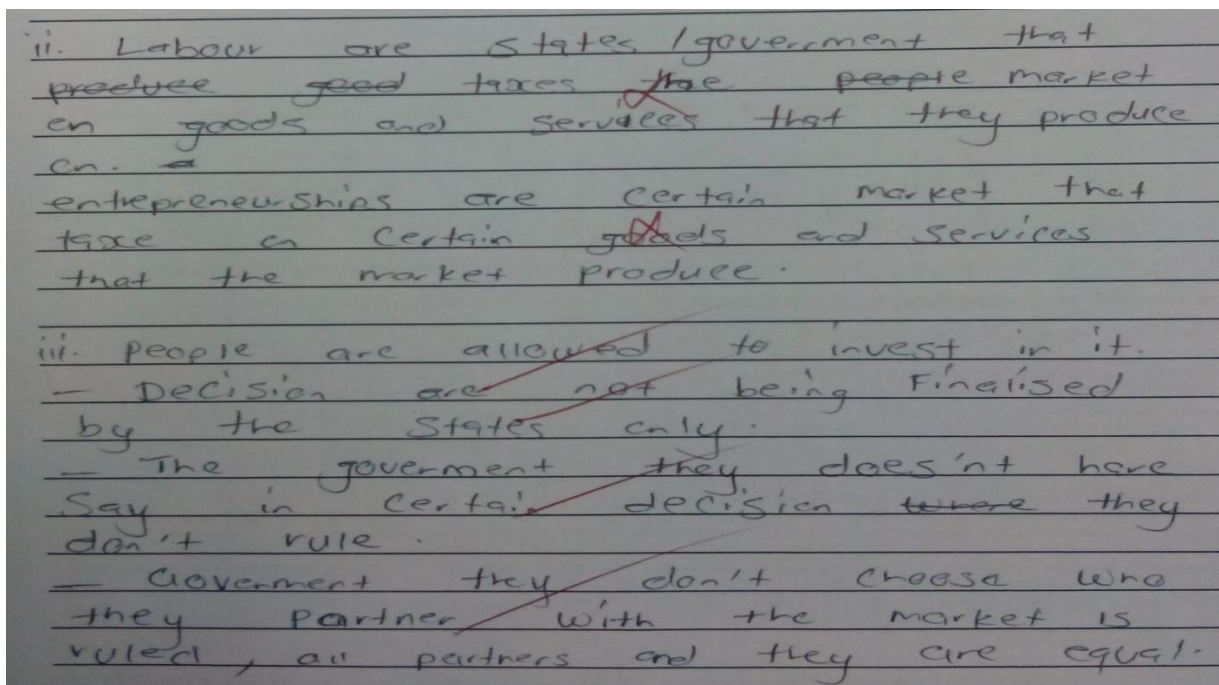 ii. Labour are states / government that
produce good taxes the people market
on goods and services that they produce
on.
entrepreneurships are certain market that
taxe on certain goods and services
that the market produce.
iii. People are allowed to invest in it.
- Decision are not being Finalised
by the States only.
- The goverment they does'nt have
Say in certain decision where they
don't rule.
- Government they don't choose who
they partner with the market is
ruled, all partners and they are equal.